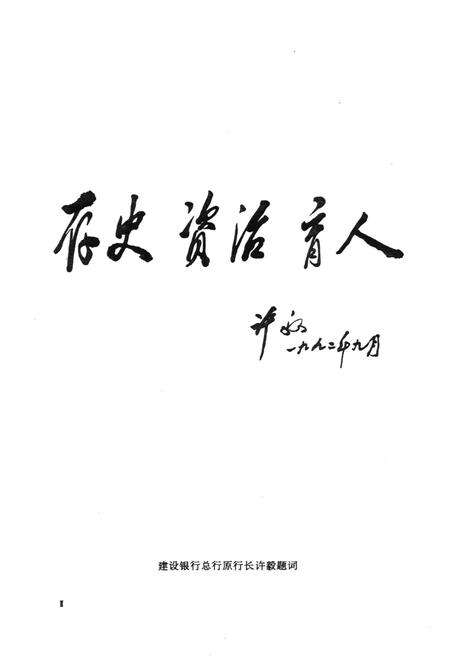 存史 资治 育人
许毅
一九九二年九月
建设银行总行原行长许毅题词
I